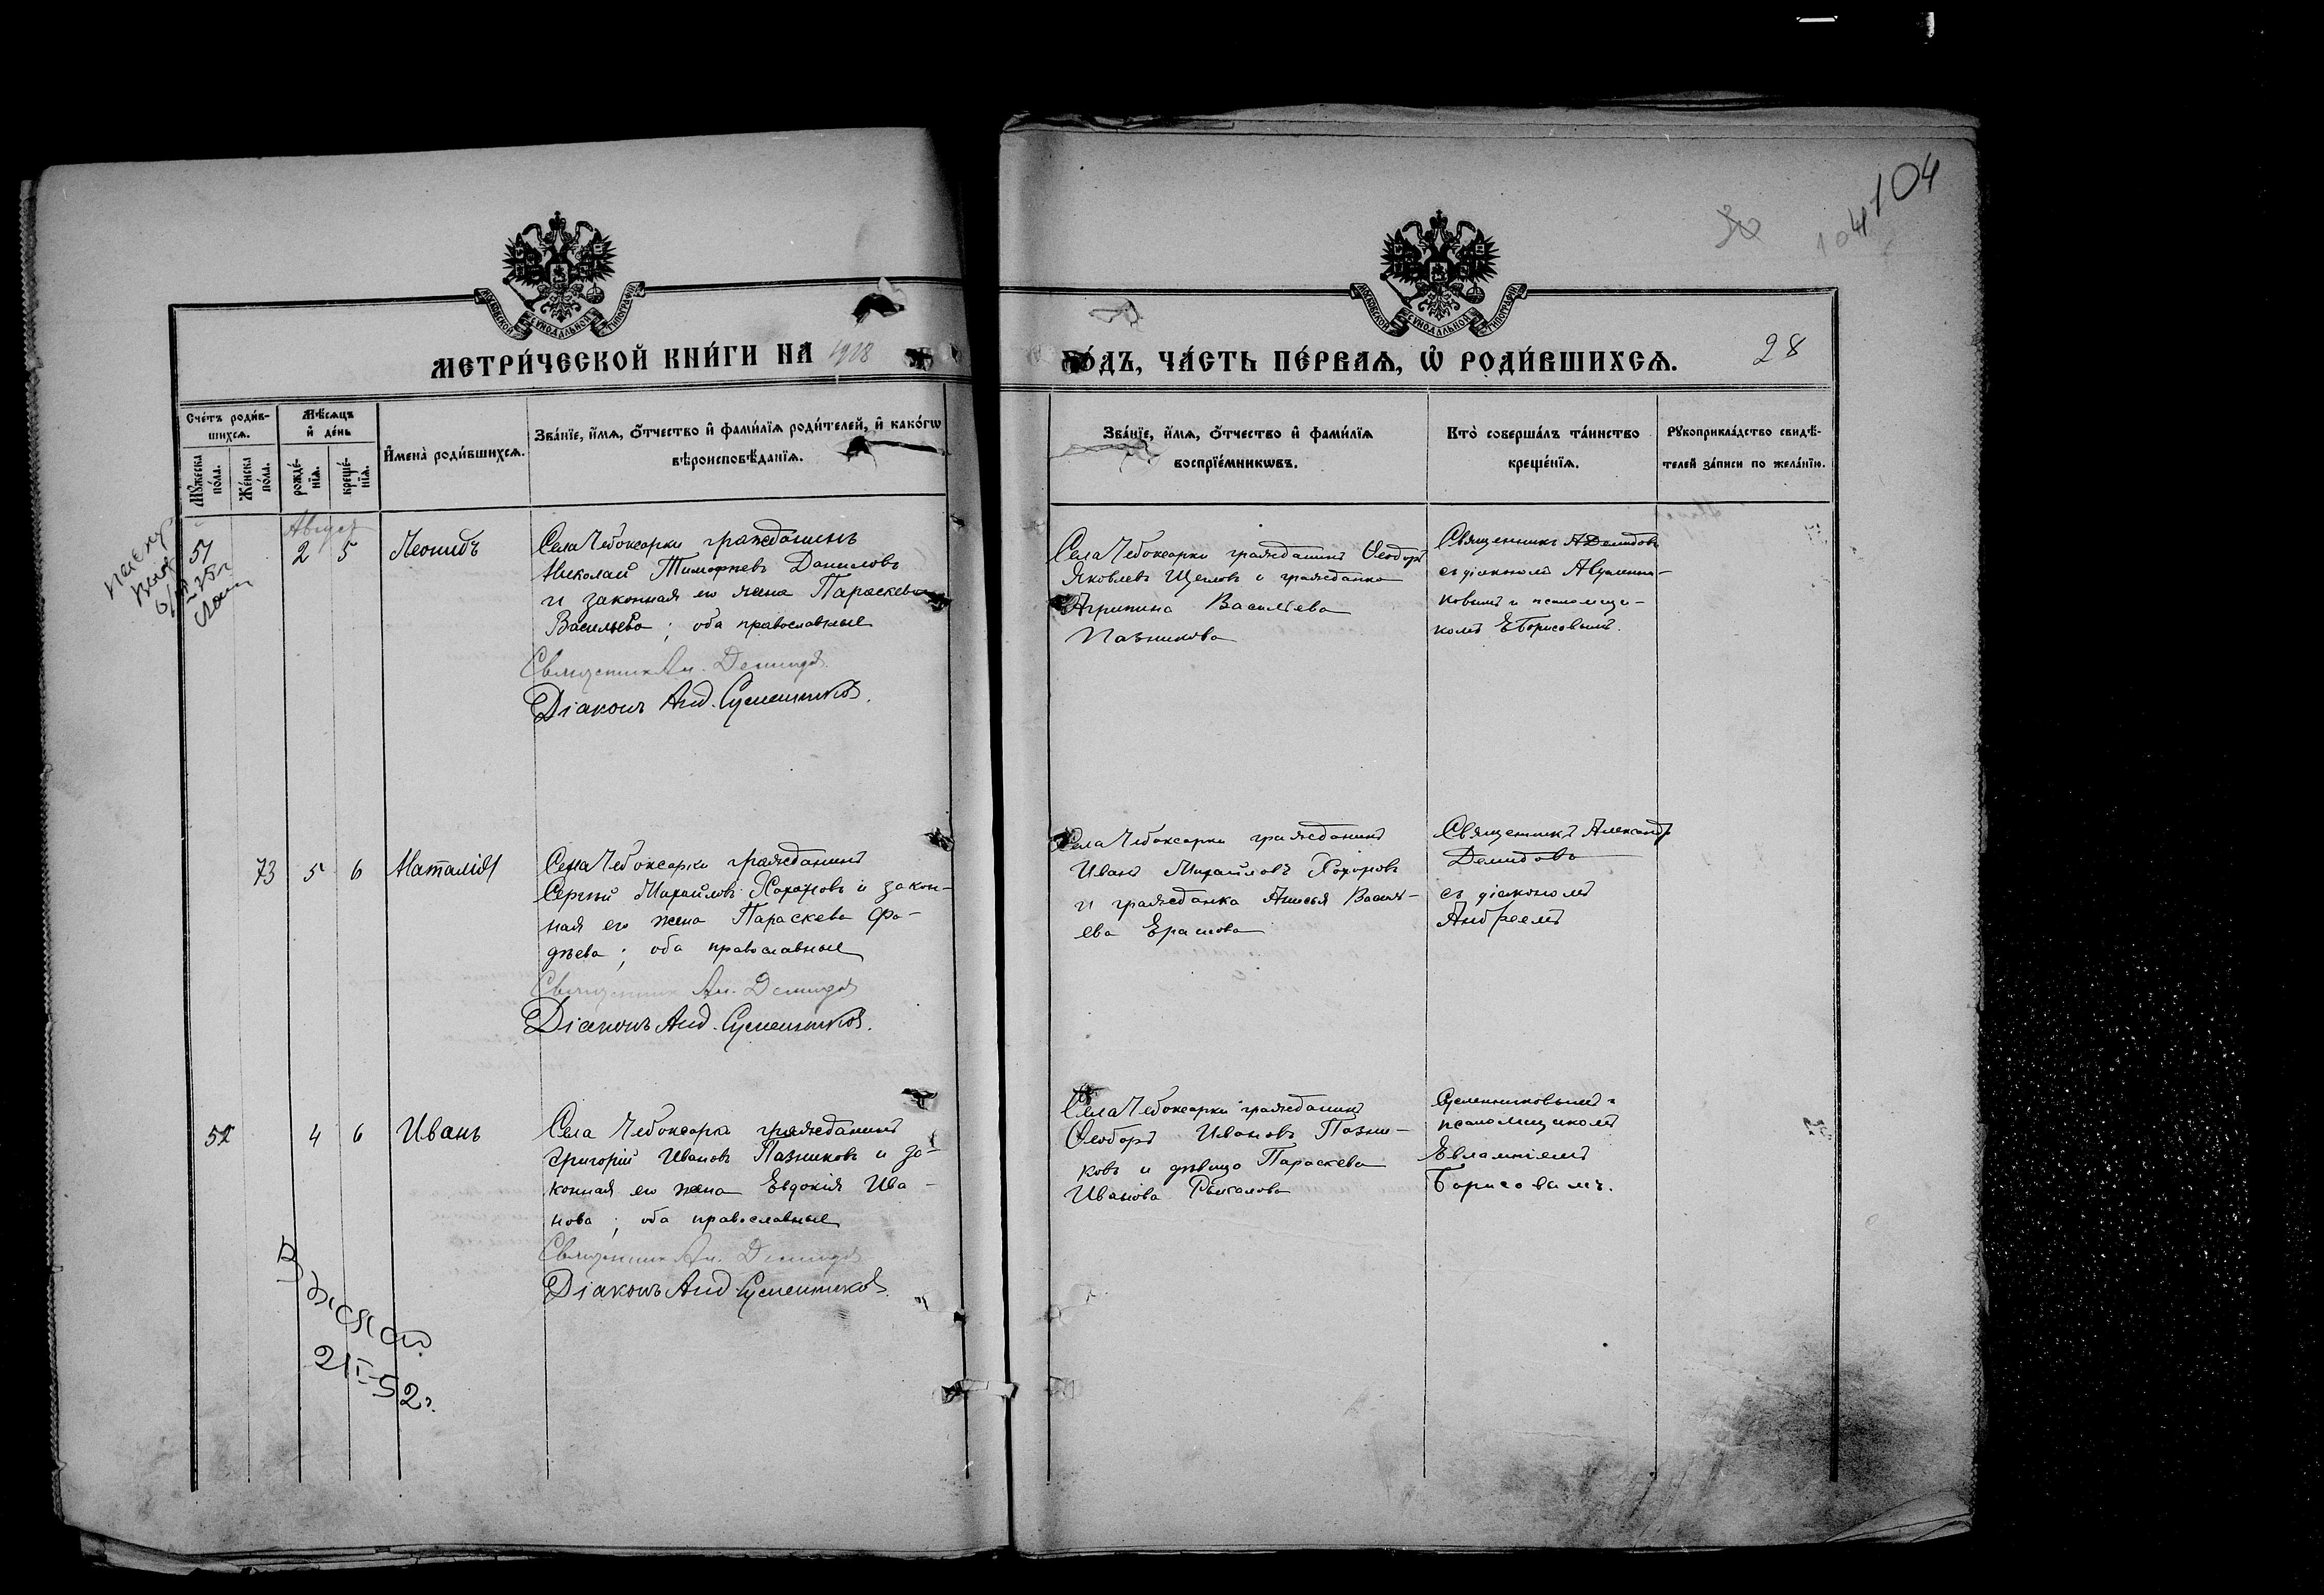 104
104
28
МОСКОВСКОЙ СѴНОДАЛЬНОЙ ТИПОГРАФІИ
МОСКОВСКОЙ СѴНОДАЛЬНОЙ ТИПОГРАФІИ
МЕТРИ́ЧЕСКОЙ КНИ́ГИ НА 1918
ГО́ДЪ, ЧА́СТЬ ПЕ́РВАѦ, Ѡ҆ РОДИ́ВШИХСѦ.
Сче́тъ роди́в-
шихсѧ.
Мѣ́сѧцъ
и҆ де́нь
И҆мена̀ роди́вшихсѧ.
Зва́нїе, и҆́мѧ, ѻ҆́тчество и҆ фами́лїѧ роди́телей, и҆ како́гѡ
вѣроисповѣ́данїѧ.
Мꙋ́жеска
по́ла.
Же́нска
по́ла.
рожде́-
нїѧ.
креще́-
нїѧ.
Зва́нїе, и҆́мѧ, ѻ҆́тчество и҆ фами́лїѧ
воспрїе́мникѡвъ.
Кто̀ соверша́лъ та́инство
креще́нїѧ.
Рꙋкоприкла́дство свидѣ́-
телей за́писи по жела́нїю.
Август
51 2 5 Леонидъ
Села Чебоксарки гражданинъ
Николай Тимофеевъ Даниловъ
и законная его жена Параскева
Васильева; оба православные
Священник Ал. Демидов
Діаконъ Анд. Сусленников.
Села Чебоксарки гражданинъ Ѳеодоръ
Яковлевъ Щегловъ и гражданка
Агрипина Васильева
Пазникова
Священникъ А Демидовъ
съ діакономъ А Суслени-
ковымъ и псаломщи-
комъ Е Борисовымъ.
73 5 6 Наталія
Села Чебоксарки гражданинъ
Сергѣй Михайловъ Хохоровъ и закон-
ная его жена Параскева Фа-
дѣева; оба православные
Священник Ал. Демидов
Діаконъ Анд. Сусленников.
Села Чебоксарки гражданинъ
Иванъ Михайловъ Хохоровъ
и гражданка Анисья Василь-
ева Ерасова
Священникъ Александръ
Демидовъ
съ діакономъ
Андреемъ
52 4 6 Иванъ
Села Чебоксарка гражданинъ
Григорій Ивановъ Пазниковъ и за-
конная его жена Евдокія Ива-
нова; оба православные
Священник Ал. Демидов
Діаконъ Анд. Сусленников.
Села Чебоксарки гражданинъ
Ѳеодоръ Ивановъ Пазни-
ковъ и дѣвица Параскева
Иванова
Сусленниковымъ и
псаломщикомъ
Евлампіемъ
Борисовымъ.
21-I-52г.